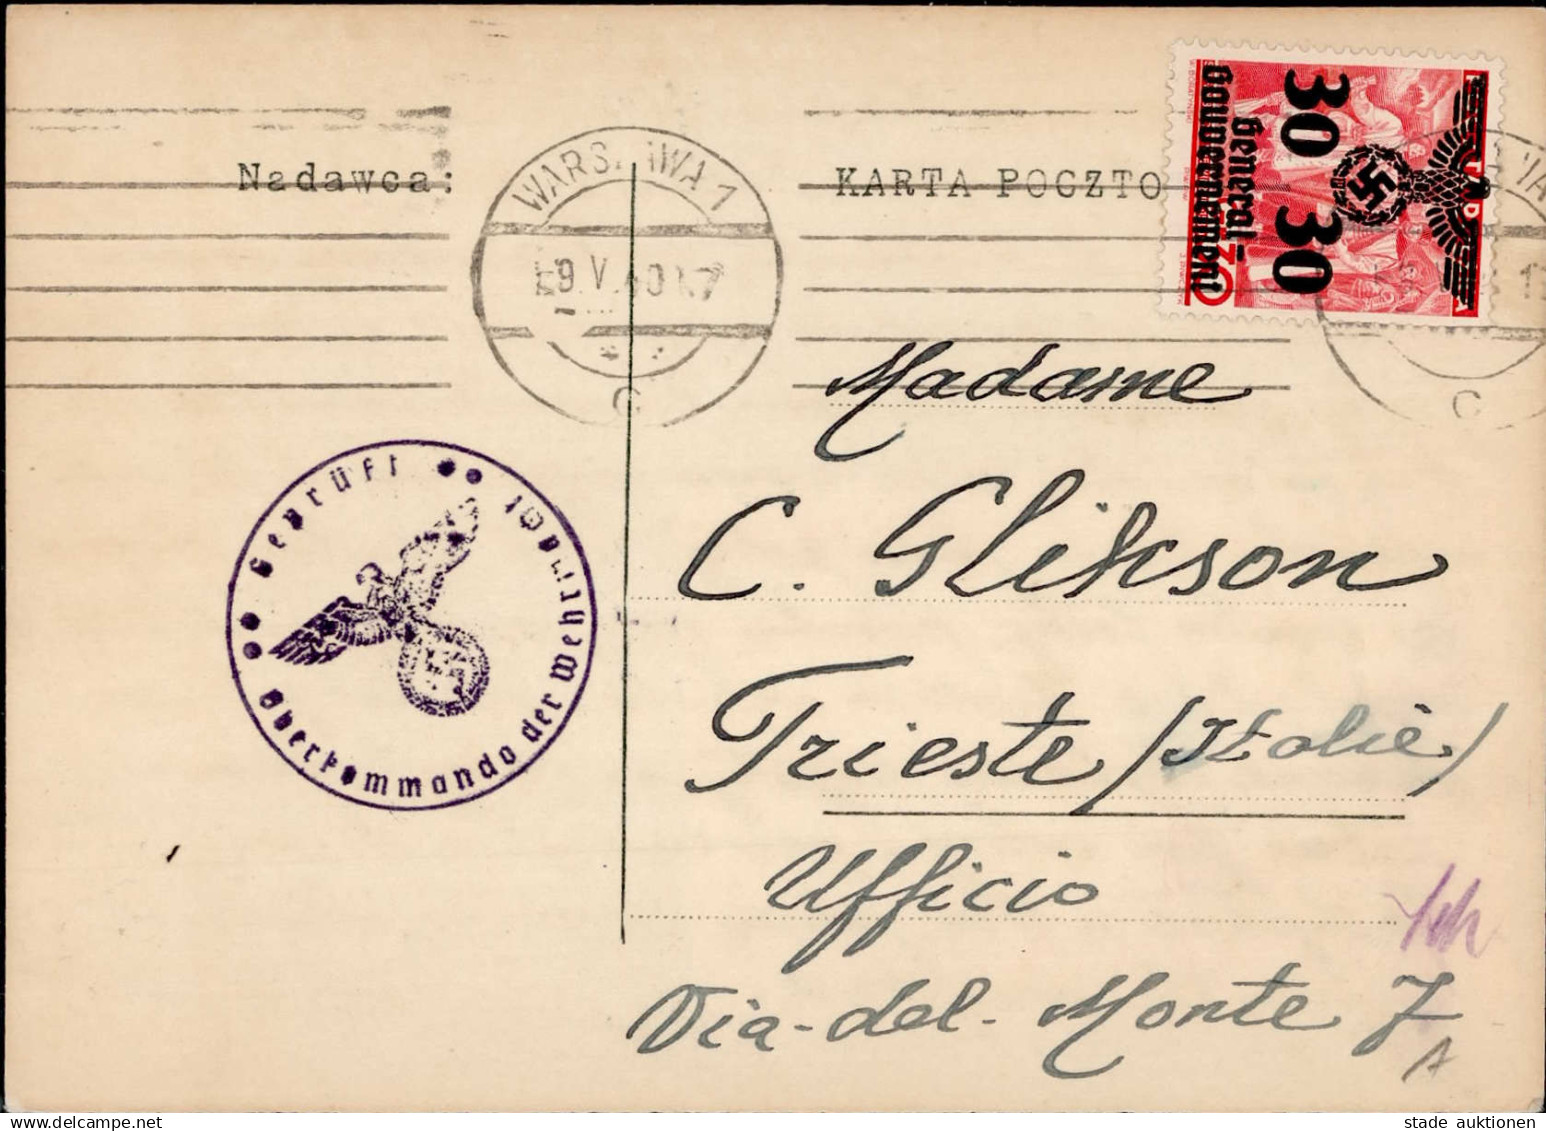 Nadawca:
WARSZAWA 1
9.V.40 17
C
KARTA POCZTO
30 30
General-
Gouvernement
30
Geprüft
Oberkommando der Wehrmacht
C
Madame
C. Glikson
Trieste (Italie)
Ufficio
Via-del-Monte 7
A
stade auktionen